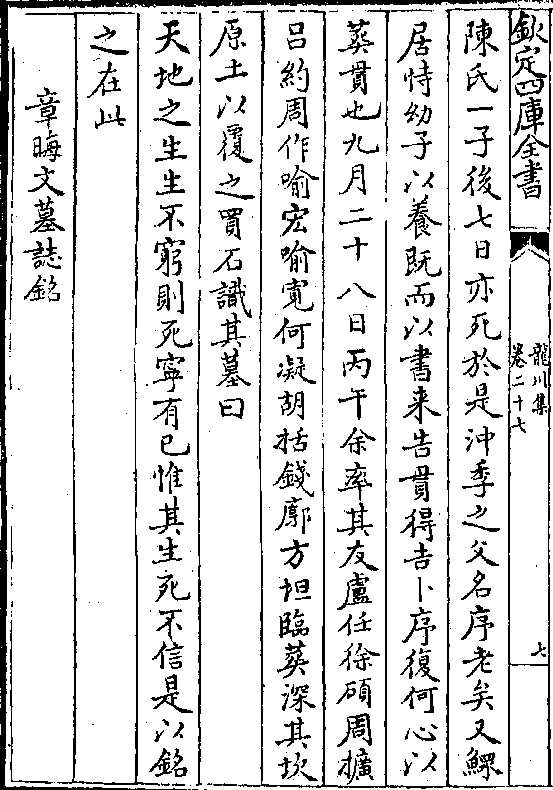 欽定四庫全書
龍川集
卷二十七
七
陳氏一子後七日亦死於是沖季之父名序老矣又鰥
居恃幼子以養既而以書来告貫得吉卜序復何心以
葬貫也九月二十八日丙午余率其友盧任徐碩周擴
吕約周作喻宏喻寛何凝胡括錢廓方坦臨葬深其坎
原土以覆之買石識其墓曰
天地之生生不窮則死寧有已惟其生死不信是以銘
之在此
章晦文墓誌銘